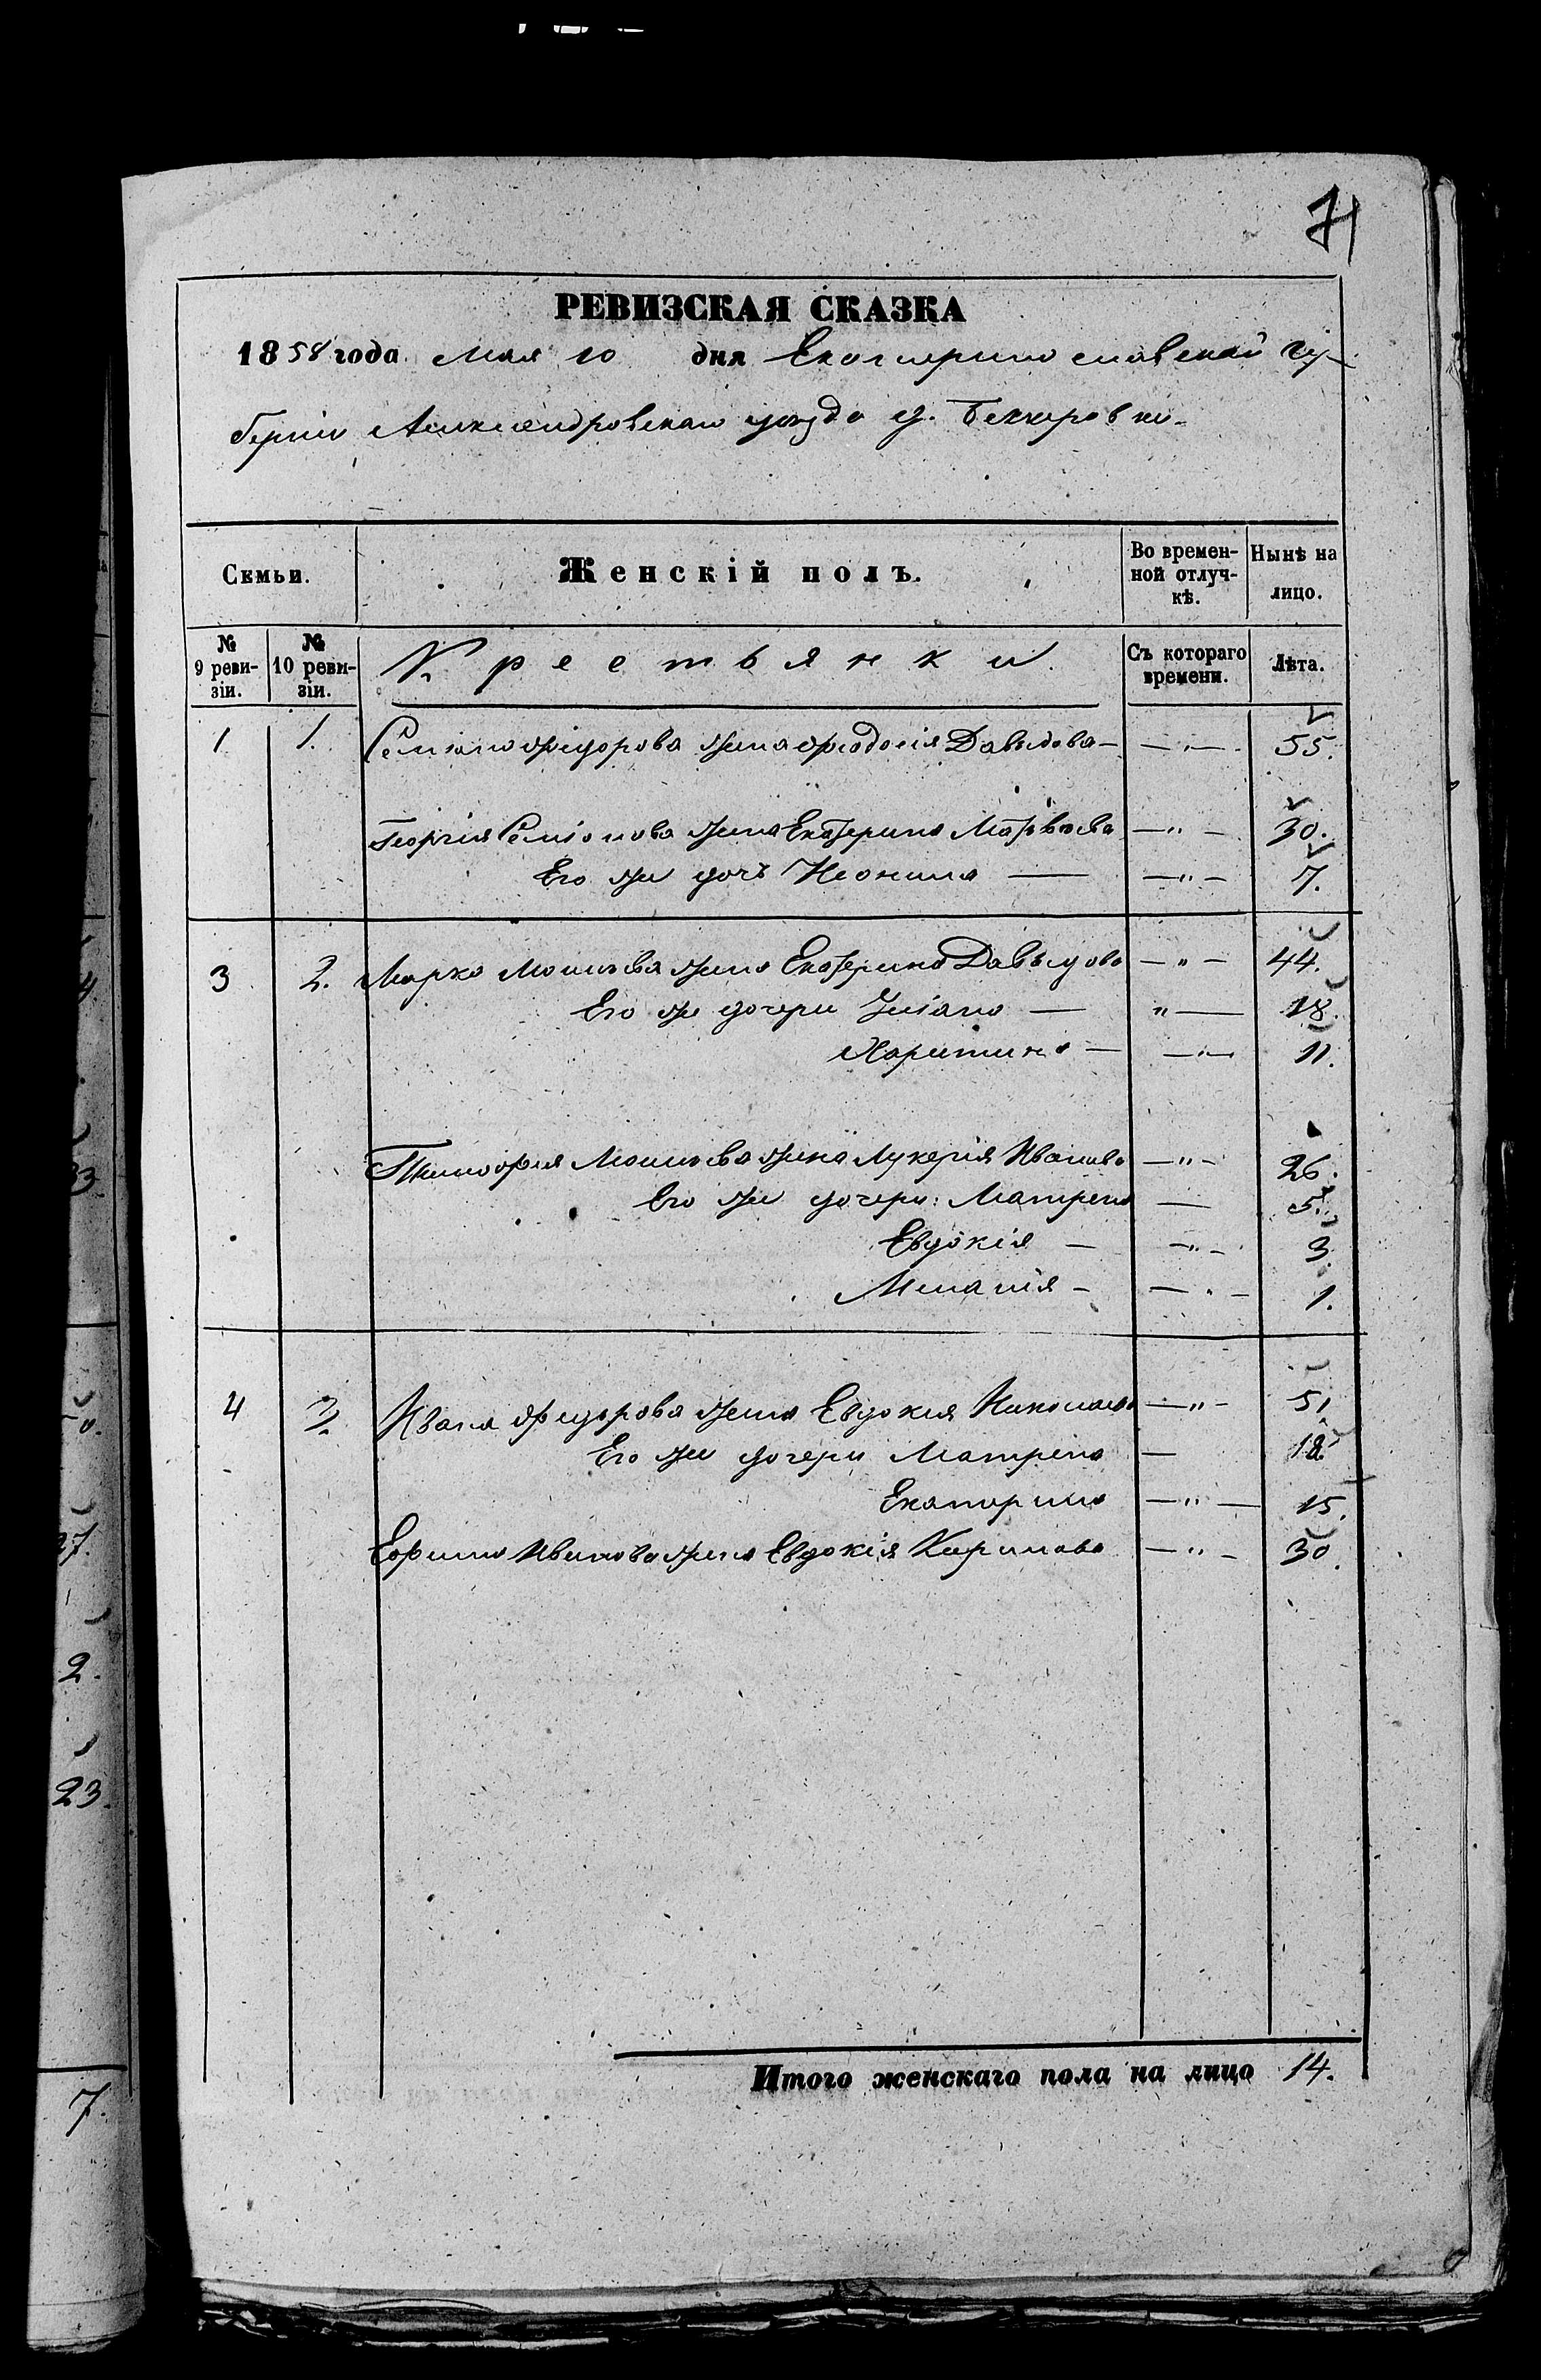 71
РЕВИЗСКАЯ СКАЗКА
1858 года Мая 10 дня Екатеринославской Гу-
берніи Александровскаго уезда д. Беккаровки.
Семьи. Женскій полъ. Во времен-ной отлуч-кѣ. Нынѣ на лицо.
№ 9 реви-зіи. № 10 реви-зіи. Крестьянки. Съ котораго времени. Лѣта.
1 1. Семена Федорова жена Феодосія Давыдова — — " — 55.
Георгія Семіонова жена Екатерина Матвѣева — " — 30.
Его же дочь Неонила — — " — 7.
3 2. Марка Моисѣева жена Екатерина Давыдова — " — 44.
Его же дочери Уліана — " — 18.
Харитина — — " — 11.
Тимофея Моисѣева жена Лукерія Иванова — " — 26.
Его же дочери: Матрена — 5.
Евдокія — — " — 3.
Меланія — — " — 1.
4 3. Ивана Федорова жена Евдокия Николаева — " — 51
Его же дочери Матрена — 18
Екатерина — " — 15.
Ефима Иванова жена Евдокія Кирилова — " — 30.
Итого женскаго пола на лицо 14.
4.
33.
0.
27.
2.
23.
7.